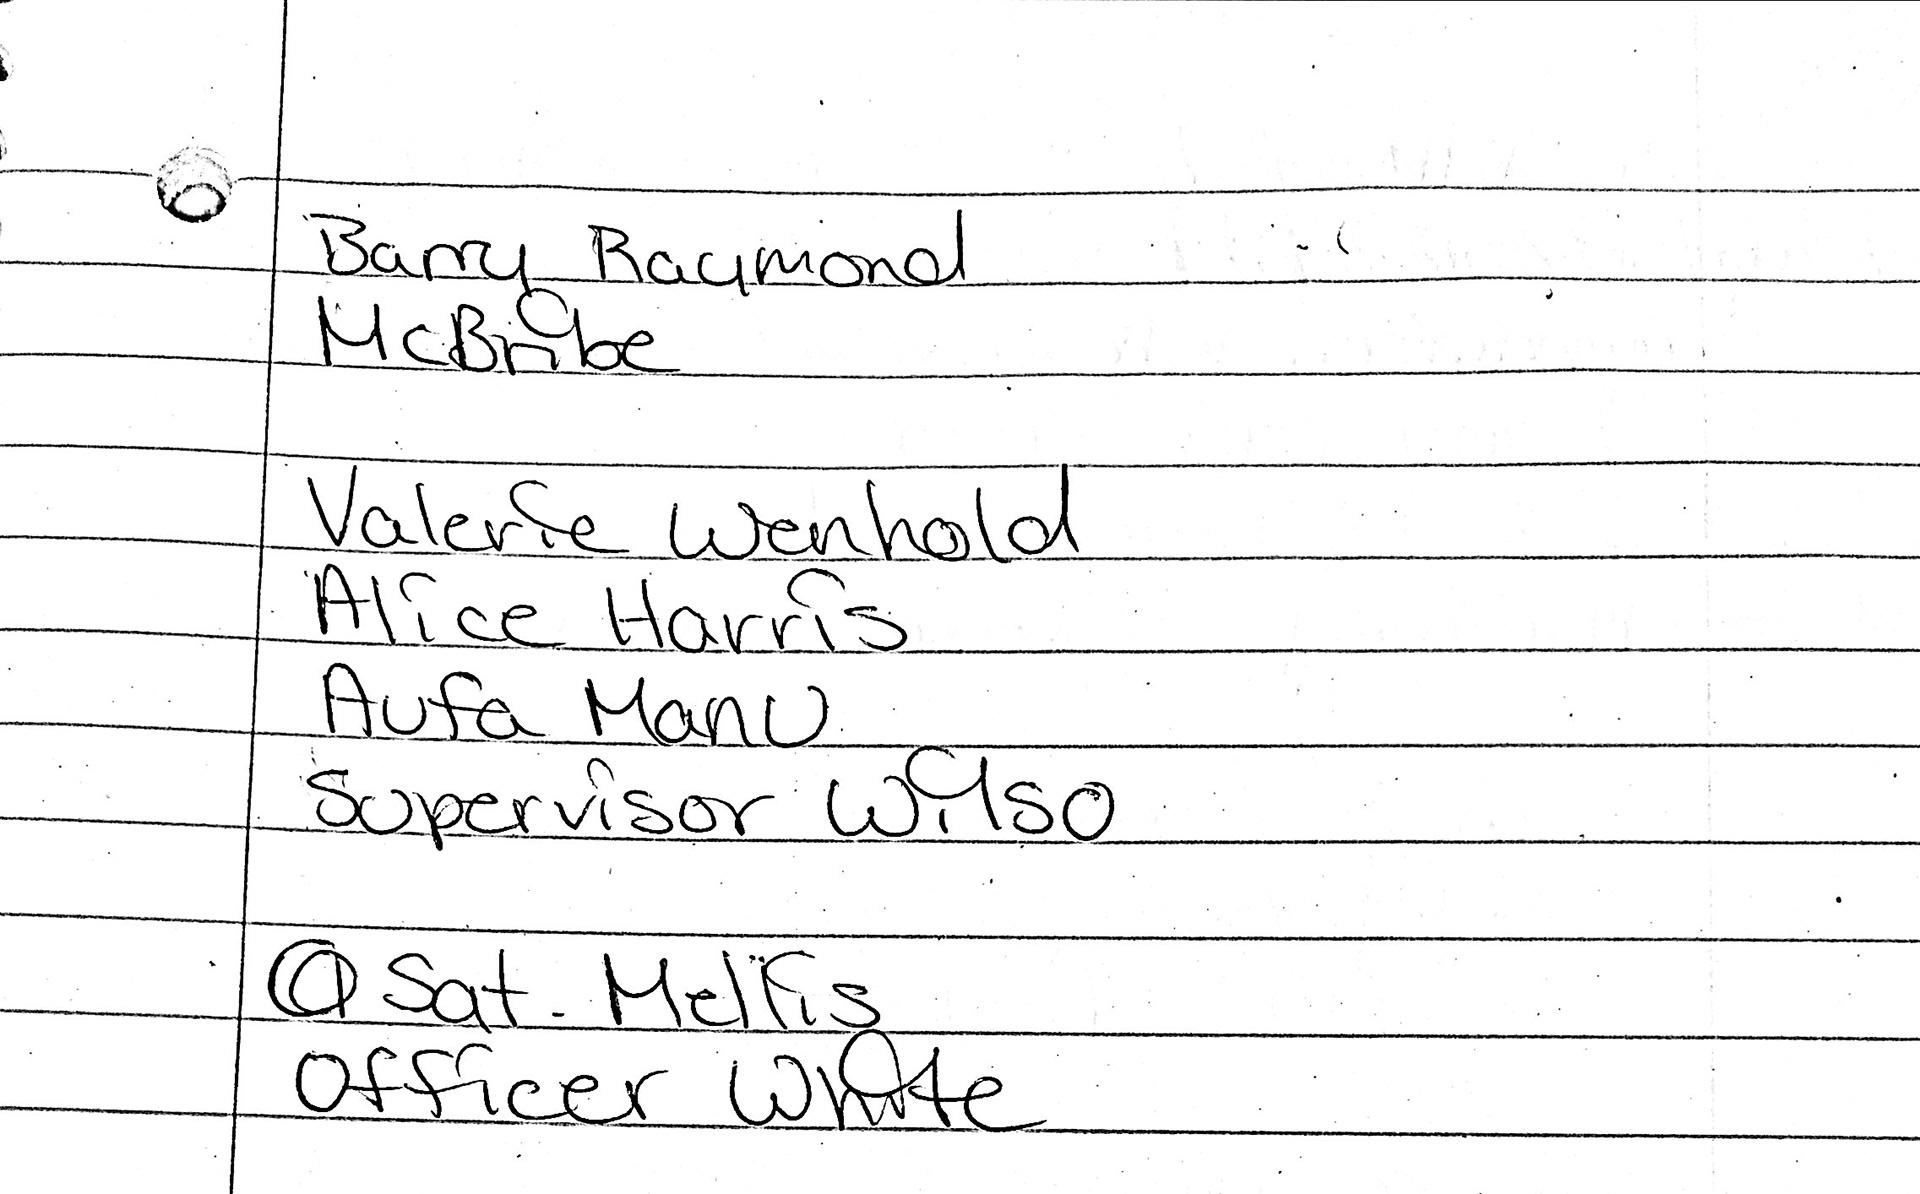 Barry Raymond
McBribe
Valerie Wenhold
Alice Harris
Aufa Manu
Supervisor Wilso
@ Sat. Mellis
Officer White